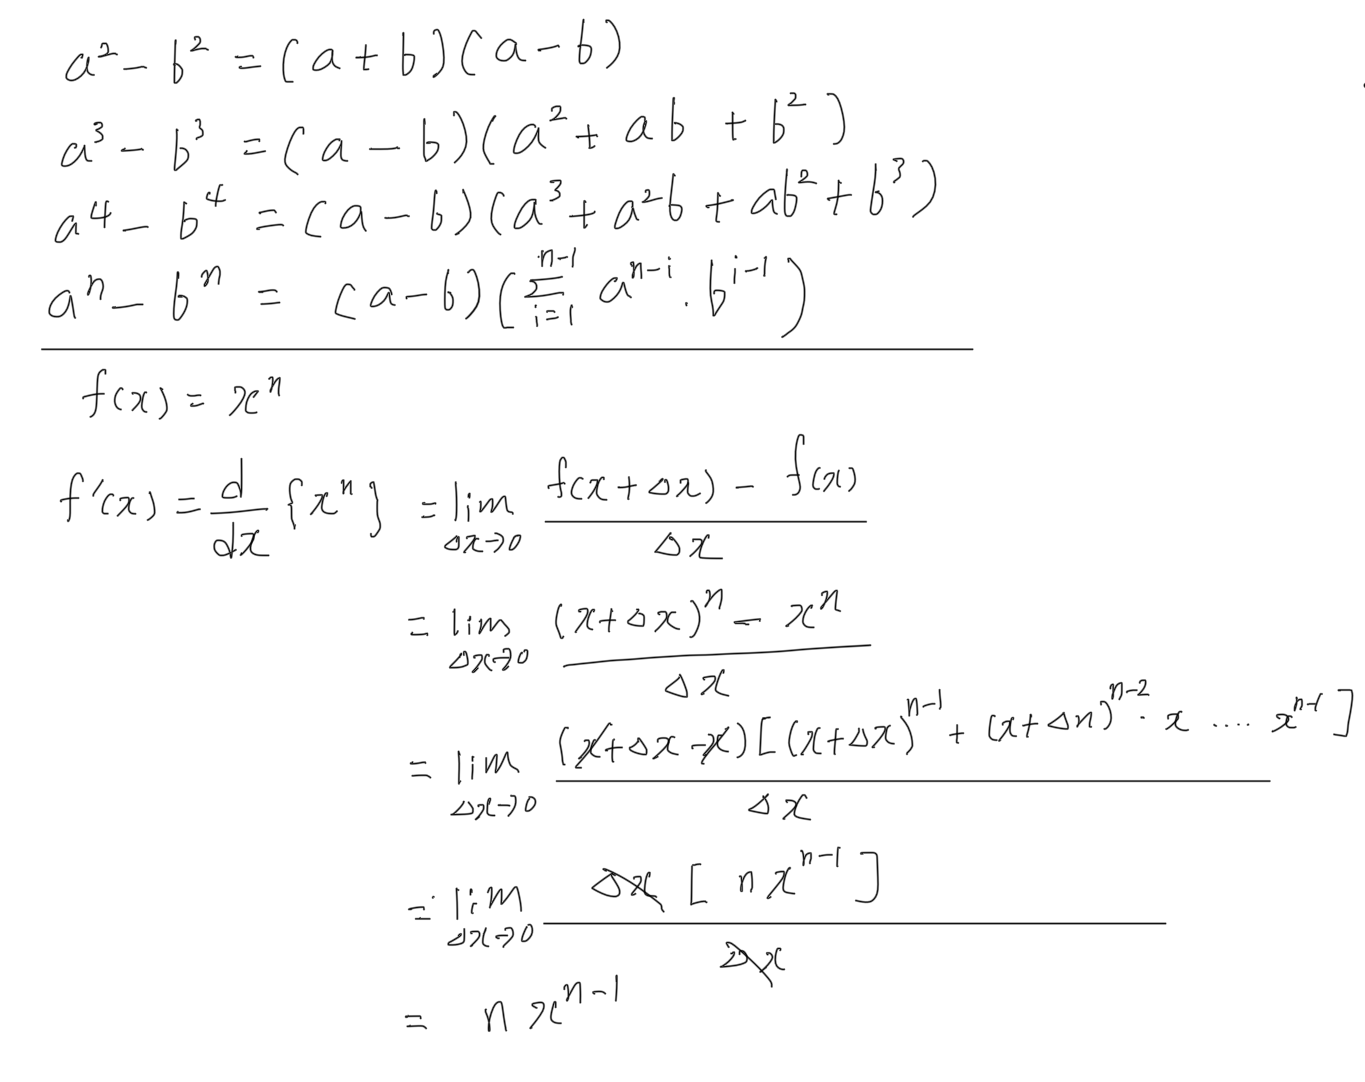 a² - b² = (a + b)(a - b)
a³ - b³ = (a - b)(a² + ab + b²)
a⁴ - b⁴ = (a - b)(a³ + a²b + ab² + b³)
aⁿ - bⁿ = (a - b)(∑_{i=1}^{n-1} a^{n-i} . b^{i-1})
f(x) = xⁿ
f'(x) = d/dx {xⁿ} = lim_{Δx→0} (f(x + Δx) - f(x)) / Δx
= lim_{Δx→0} ((x + Δx)ⁿ - xⁿ) / Δx
= lim_{Δx→0} (x + Δx - x)[(x + Δx)^{n-1} + (x + Δn)^{n-2} · x .... x^{n-1}] / Δx
= lim_{Δx→0} Δx [n x^{n-1}] / Δx
= n x^{n-1}